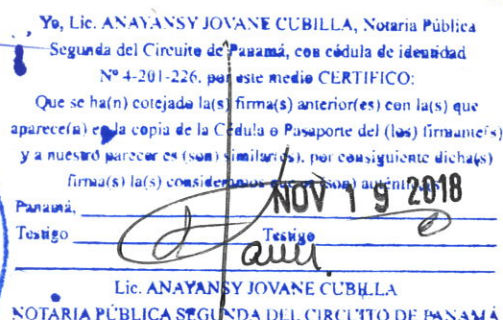 Yo, Lic. ANAYANSY JOVANE CUBILLA, Notaria Pública
Segunda del Circuito de Panamá, con cédula de identidad
Nº 4-201-226, por este medio CERTIFICO:
Que se ha(n) cotejado la(s) firma(s) anterior(es) con la(s) que
aparece(n) en la copia de la Cédula o Pasaporte del (los) firmante(s)
y a nuestro parecer es (son) similar(es), por consiguiente dicha(s)
firma(s) la(s) consideramos que es (son) auténtica(s)
NOV 19 2018
Panamá,
Testigo Testigo
Lic. ANAYANSY JOVANE CUBILLA
NOTARIA PÚBLICA SEGUNDA DEL CIRCUITO DE PANAMÁ